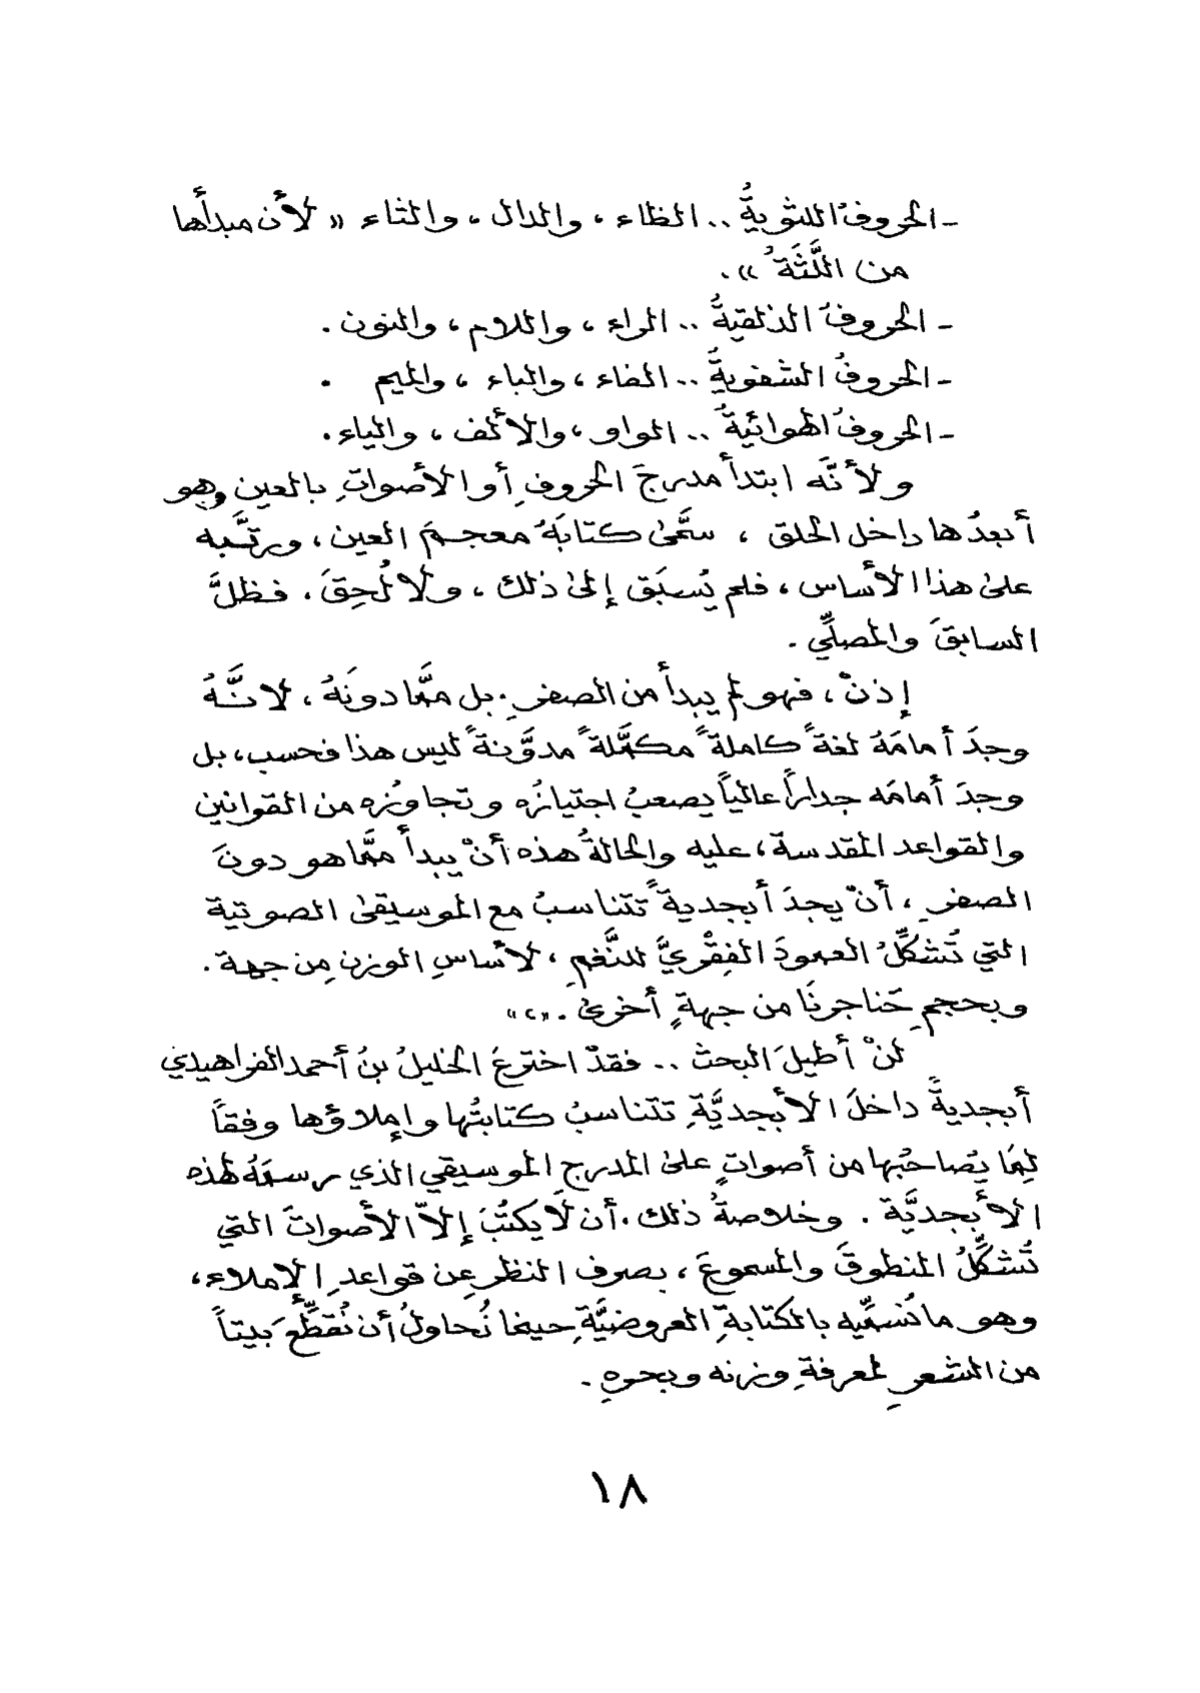 - الحروفُ اللثويةُ .. الظاء ، والدال ، والثاء « لأن مبدأها
من اللَّثَةُ » .
- الحروفُ الذلقيةُ .. الراء ، واللام ، والنون .
- الحروفُ الشفويةُ .. الفاء ، والباء ، والميم .
- الحروفُ الهوائيةُ .. الواو ، والألف ، والياء .
ولأنَّه ابتدأ مدرجَ الحروفِ أو الأصواتِ بالعين وهو
أبعدُها داخل الحلق ، سمَّىٰ كتابَهُ معجمَ العين ، ورتَّبه
علىٰ هذا الأساس ، فلم يُسبَق إلىٰ ذلك ، ولا لُحِقَ . فظلَّ
السابقَ والمصلِّي .
إذنْ ، فهو لم يبدأ من الصفرِ . بل ممَّا دونَهُ ، لانَّهُ
وجدَ أمامَهُ لغةً كاملةً مكمَّلةً مدوَّنةً ليس هذا فحسب ، بل
وجدَ أمامَه جداراً عالياً يصعبُ اجتيازُه وتجاوُزه من القوانين
والقواعد المقدسة ، عليه والحالةُ هذه أنْ يبدأ ممَّا هو دونَ
الصفرِ ، أنْ يجدَ أبجديةً تتناسبُ مع الموسيقىٰ الصوتية
التي تُشكِّلُ العمودَ الفِقْريَّ للنَّغمِ ، لأساسِ الوزنِ مِن جهة .
وبحجمِ حَناجرنَا من جهةٍ أخرىٰ . «٢»
لنْ أطيلَ البحث .. فقدْ اخترعَ الخليلُ بنُ أحمد الفراهيدي
أبجديةً داخلَ الأبجديَّةِ تتناسبُ كتابتُها وإملاؤها وفقاً
لِمَا يُصاحبُها من أصواتٍ علىٰ المدرجِ الموسيقي الذي رسمَهُ لهذه
الأبجديَّة . وخلاصةُ ذلك . أن لَا يكتُبَ إلاّ الأصواتَ التي
تُشكِّلُ المنطوقَ والمسموعَ ، بصرف النظرِ عن قواعدِ الإملاء ،
وهو ما نُسمِّيه بالكتابةِ العروضيَّةِ حينما نُحاولُ أن نُقطِّعَ بيتاً
من الشعرِ لمعرفةِ وزنه وبحرهِ .
١٨